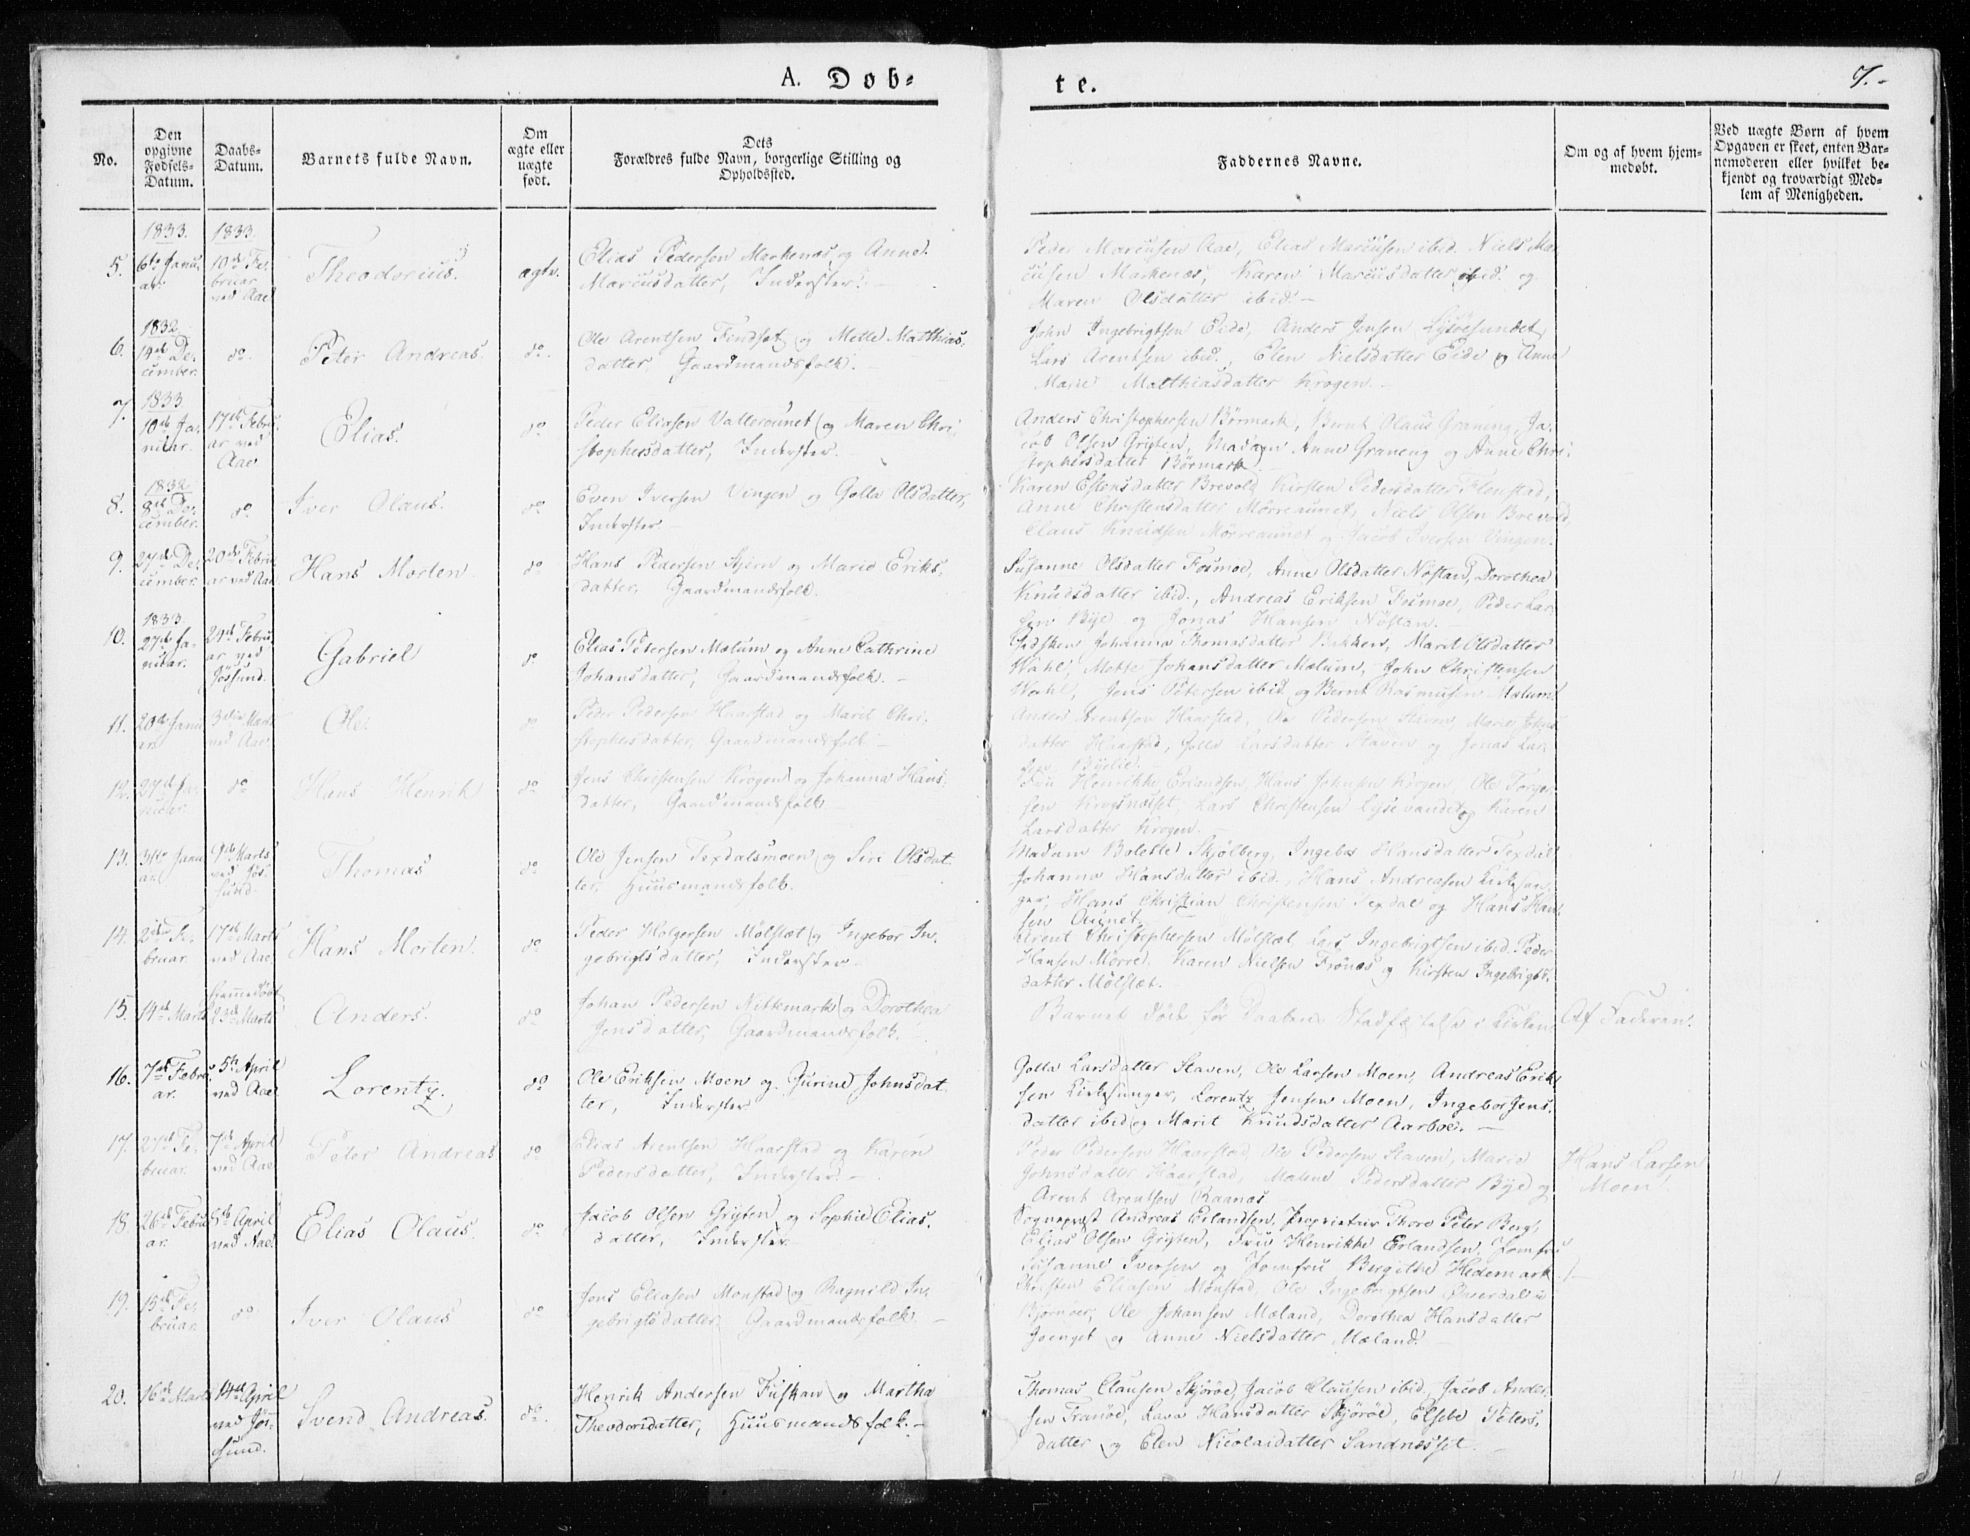 A. Døb=
te.
7.-
No.
Den opgivne Fødsels-Datum.
Daabs-Datum.
Barnets fulde Navn.
Om ægte eller uægte født.
Dets Forældres fulde Navn, borgerlige Stilling og Opholdssted.
Faddernes Navne.
Om og af hvem hjem-medøbt.
Ved uægte Børn af hvem Opgaven er skeet, enten Bar-nemoderen eller hvilket be-kjendt og troværdigt Med-lem af Menigheden.
1833. 1833.
5. 6te Janu- 10de Fe- Theodorius. ægte. Elias Pedersen Markenæs og Anne
ar. bruar ved Aae Marcusdatter, Inderster.
Peder Marcusen Aae, Elias Marcusen ibid. Niels Mar-
cusen Markenæs, Karen Marcusdatter ibid. og
Maren Olsdatter ibid.
1832
6. 14de De- do. Peter Andreas. do. Ole Arentsen Fendset og Mette Matthias-
cember. datter, Gaardmandsfolk.
John Ingebrigtsen Eide, Anders Jensen Lysøesundet,
Lars Arentsen ibid., Elen Nielsdatter Eide og Anne
Marie Matthiasdatter Krogen.
1833
7. 10de Ja- 17de Febru- Elias. do Peder Eliasen Vatteraunet og Maren Chri-
nuar. ar ved Aae stophersdatter, Inderster.
Anders Christophersen Børmark, Bernt Olaus Graning, Ja-
cob Olsen Grigten, Madam Anne Graneng og Anne Chri-
stophersdatter Børmark
1832
8. 8de De- do Iver Olaus. do Even Iversen Vingen og Golla Olsdatter,
cember. Inderster
Karen Estensdatter Brevold, Kirsten Pedersdatter
Anne Christensdatter Mørreaunet, Niels Olsen Brevold
Claus Knudsen Mørreaunet og Jacob Iversen Vingen.
9. 27de De- 20de Febru- Hans Morten do Hans Pedersen Stjern og Marie Eriks-
cember. ar ved Aae datter, Gaardmandsfolk.
Susanne Olsdatter Fosmoe, Anne Olsdatter Nøstan, Dorothea
Knudsdatter ibid., Andreas Eriksen Fosmoe, Peder Lar-
sen Bye og Jonas Hansen Nøstan.
1833.
10. 27de Ja- 24de Febru- Gabriel do Elias Petersen Mælum og Anne Cathrine
nuar. ar ved Jøssund. Johansdatter, Gaardmandsfolk.
Johanna Thomasdatter Bakken, Marit Olsdatter
Wahl, Mette Johansdatter Mælum, John Christensen
Wahl, Jens Petersen ibid og Bernt Rasmusen Mælum.
11. 20de Janu- 3die Marts Ole. do Peder Pedersen Haarstad og Marit Chri-
ar. ved Aae. stophersdatter, Gaardmandsfolk
Anders Arentsen Haarstad, Ole Pedersen Staven, Marie Johns-
datter Haarstad, Golla Larsdatter Staven og Jonas Lar-
sen Byelie.
12. 27de Ja- do Hans Henrik do Jens Christensen Krogen og Johanna Hans-
nuar. datter, Gaardmandsfolk
Fru Henrikke Erlandsen, Hans Johnsen Krogen, Ole Torger-
sen Krogsnæset, Lars Christensen Lysevandet og Karen
Larsdatter Krogen.
13. 31te Janu- 9de Marts Thomas do Ole Jensen Texdalsmoen og Siri Olsdat-
ar. ved Jøssund. ter, Huusmandsfolk.
Madam Bolette Skjølberg, Ingebor Hansdatter Texdal
Johanna Hansdatter ibid., Hans Andreasen Kirkesan-
ger, Hans Christian Christensen Texdal og Hans Han-
sen Aunet.
14. 2den Fe- 17de Marts Hans Morten. do Peder Holgersen Mølslæt og Ingebor In-
bruar. ved Aae gebrigtsdatter, Inderster
Arent Christophersen Mølslæt, Lars Ingebrigtsen ibid. Peder
Hansen Mørre. Karen Nielsen Frønæs og Kirsten Ingebrigts-
datter Mølslæt.
15. 14de Marts hjemmedøbt 23de Marts Anders. do Johan Pedersen Nittemark og Dorothea
Jensdatter, Gaardmandsfolk.
Barnet døde før Daabens Stadfæstelse i Kirken. Af Faderen.
16. 7de Febru- 5te April Lorentz. do Ole Eriksen Moen og Gurine Johnsdat-
ar. ved Aae ter, Inderster
Golla Larsdatter Staven, Ole Larsen Moen, Andreas Erik-
sen Kirkesanger, Lorentz Jensen Moen, Ingebor Jens-
datter ibid og Marit Knudsdatter Aarboe.
17. 27de Fe- 7de April Peter Andreas do Elias Arentsen Haarstad og Karen
bruar. ved Aae Pedersdatter, Inderster.
Peder Pedersen Haarstad, Ole Pedersen Staven, Marie
Johnsdatter Haarstad, Malene Pedersdatter Bye og
Arent Arentsen Raanæs
Hans Larsen Moen
18. 26de Febru- 8de April Elias Olaus. do Jacob Olsen Grigten og Sophie Elias-
ar. ved Aae. datter, Inderster
Sognepræst Andreas Erlandsen, Proprietair Thore Peter Berg,
Elias Olsen Grigten, Fru Henrikke Erlandsen, Jomfru
Susanne Iversen og Jomfru Bergithe Hedemark
19. 15de Fe- do Iver Olaus do Jens Eliasen Monstad og Ragnild In-
bruar. gebrigtsdatter, Gaardmandsfolk
Thorsten Eliasen Monstad, Ole Ingebrigtsen
Bjørnør, Ole Johansen Mæland, Dorothea Hansdatter
Joenget og Anne Nielsdatter Mæland.
20. 16de Marts 14de April Svend Andreas. do. Henrik Andersen Fuskan og Martha
ved Jøssund. Theodorsdatter, Huusmandsfolk.
Thomas Clausen Skjørøe, Jacob Clausen ibid., Jacob Ander-
sen Tranøe, Lava Hansdatter Skjørøe, Elsebe Peters-
datter og Elen Nicolaidatter Sandnesset.